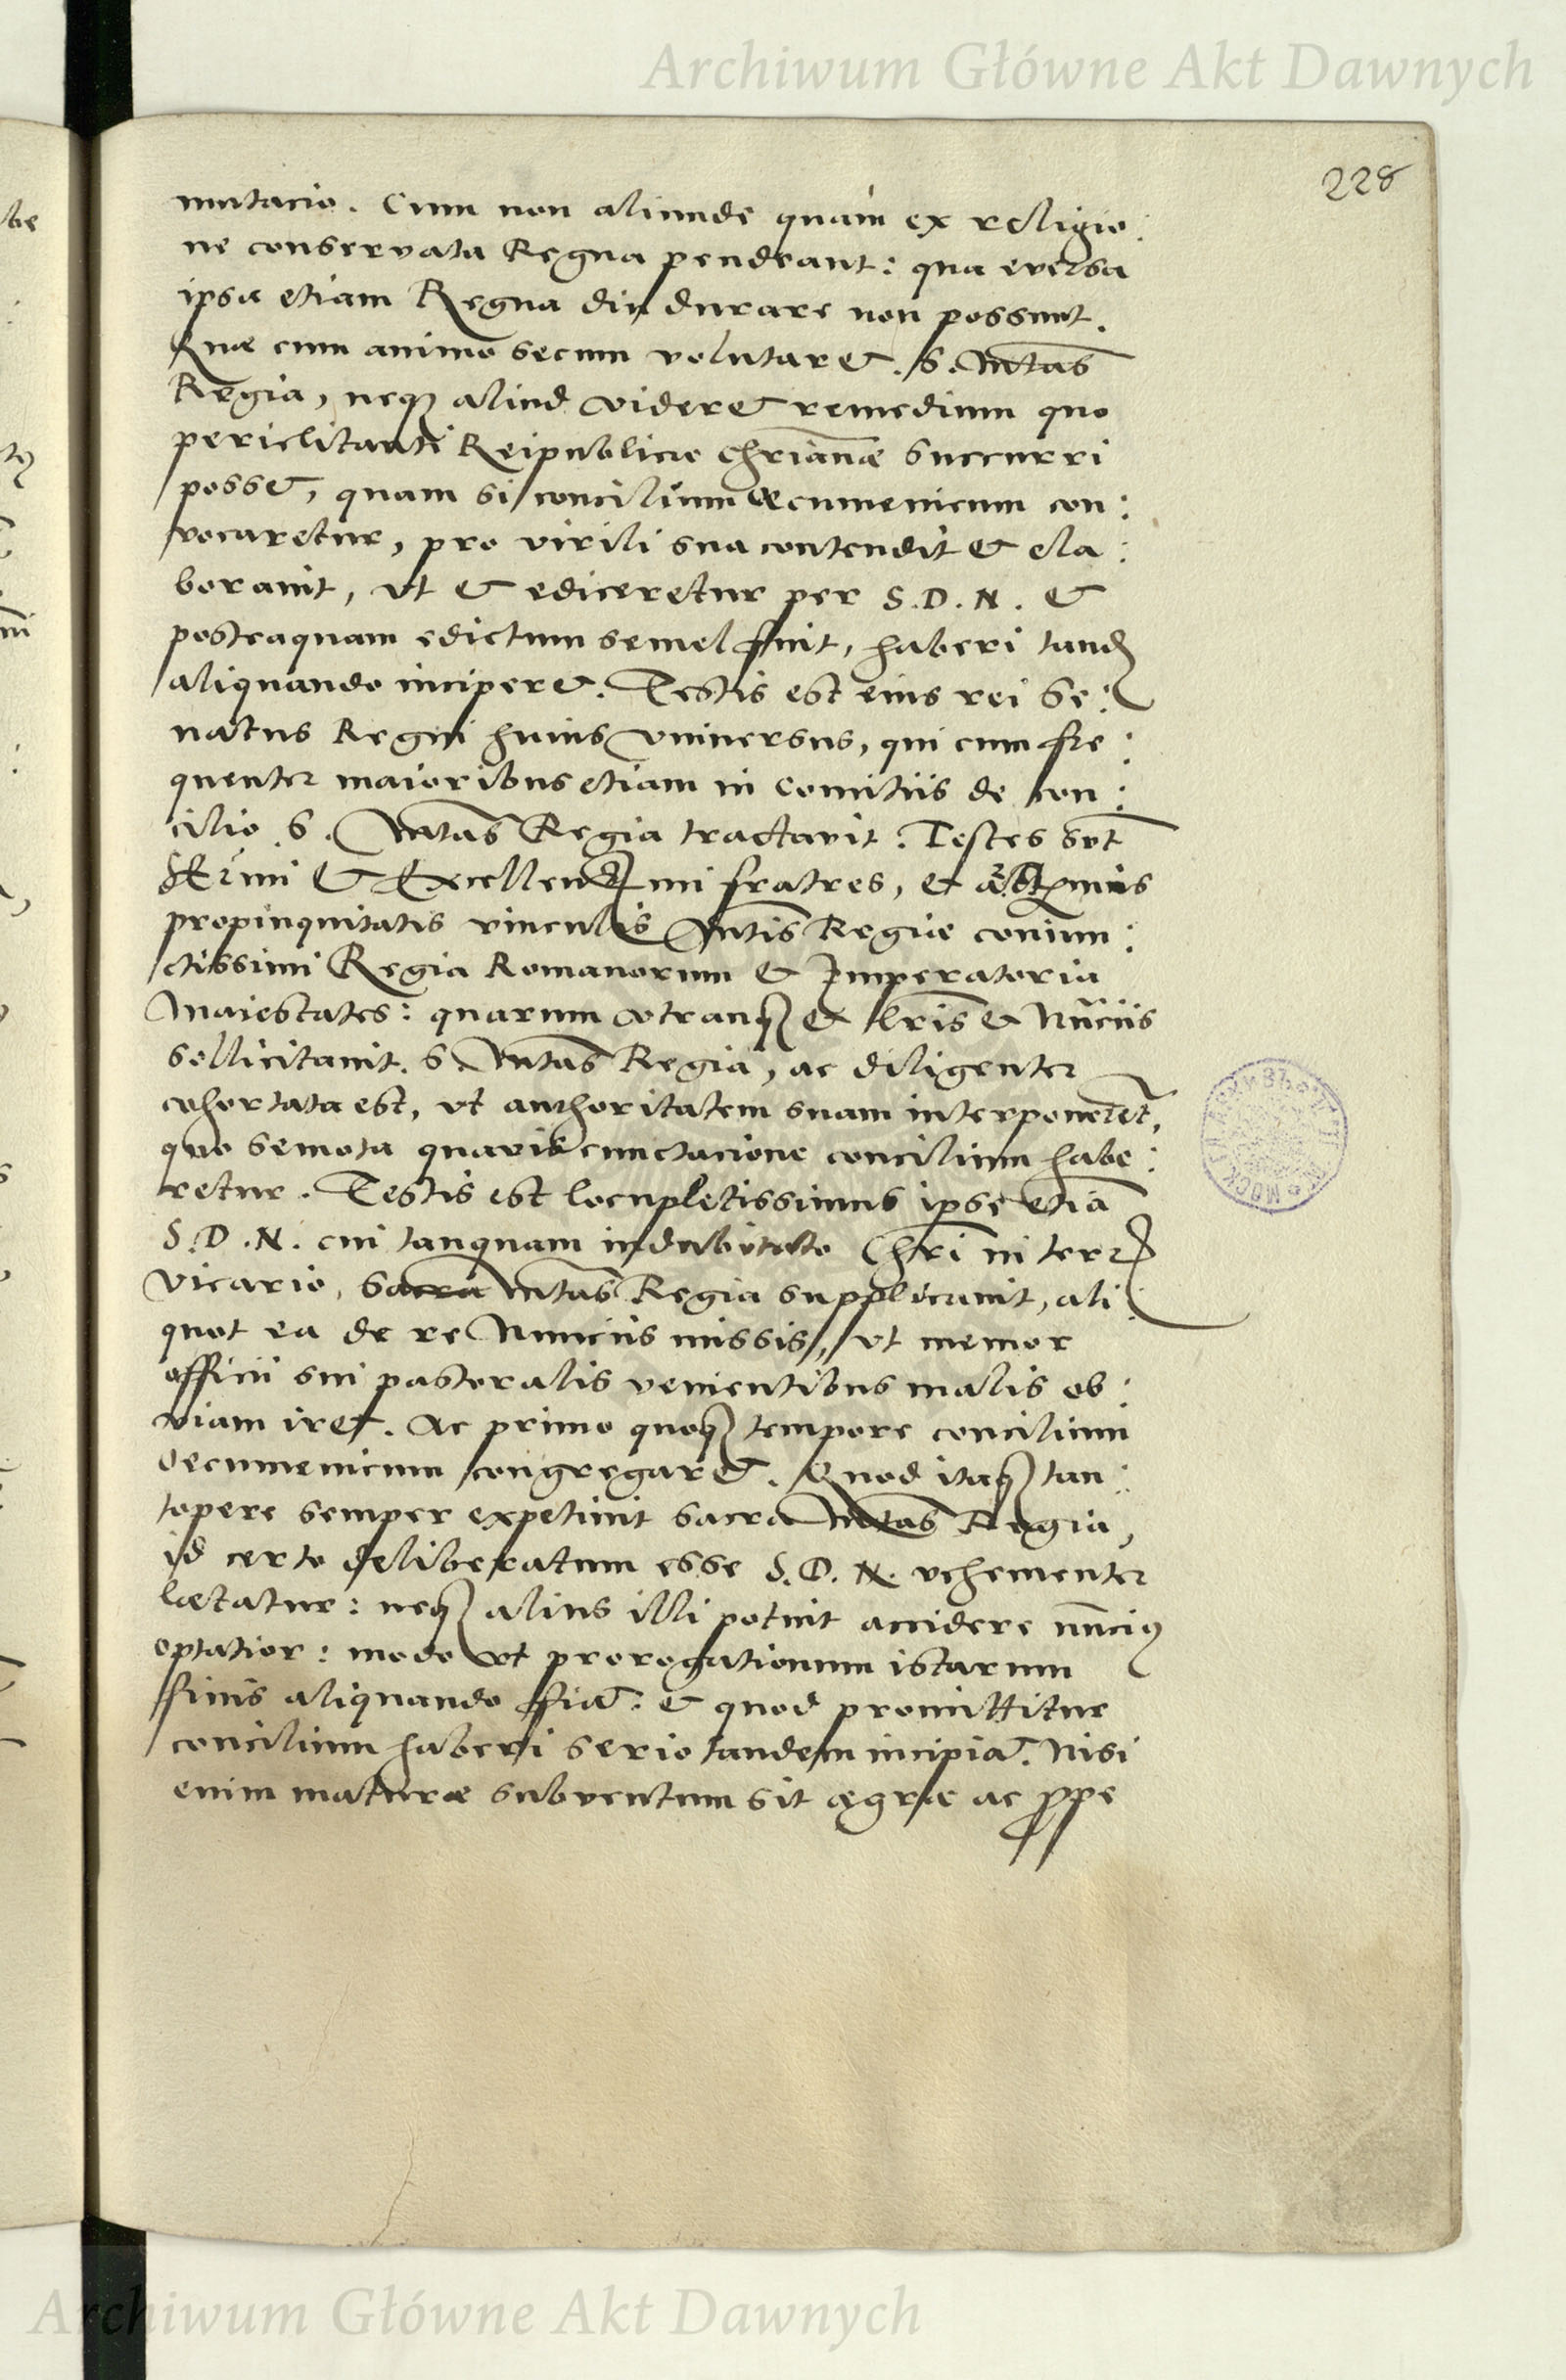 Archiwum Główne Akt Dawnych
228
mutacio. Cum non aliunde quam ex religio:
ne conservata Regna pendeant: qua eversa
ipsa etiam Regna diu durare non possunt.
Quæ cum animo secum volutaret. S. Mtas
Regia, neq3 aliud videret remedium quo
periclitanti Reipublicæ Chrianæ succurri
posset, quam si concilium œcumenicum con:
vocaretur, pro virili sua contendit et ela:
boravit, ut et ediceretur per S. D. N. et
posteaquam edictum semel fuit, haberi tandē
aliquando inciperet. Testis est eius rei Se:
natus Regni huius vniuersus, qui cum fre:
quenter maioribus etiam in Comitiis de con:
cilio S. Mtas Regia tractavit. Testes sūt
Sermi et Excellentmi fratres, et
propinquitatis vinculis Mtis Regiæ coniun:
ctissimi Regia Romanorum et Imperatoria
Maiestates: quarum vtranq3 et lris et Nūciis
sollicitauit. S. Mtas Regia, ac diligenter
cohortata est, vt authoritatem suam interponeret,
quo semota quavis cunctacione concilium habe:
retur. Testis est locupletissimus ipse etiā
S. D. N. cui tanquam indubitato Chri in terris
Vicario, Sacra Mtas Regia supplicauit, ali:
quot ea de re Nunciis missis, vt memor
officii sui pastoralis venientibus malis ob:
viam iret. Ac primo quoq3 tempore concilium
oecumenicum congregaret. Quod itaq3 tan:
topere semper expetiuit Sacra Mtas Regia,
id certo deliberatum esse S. D. N. vehementer
lætatur: neq3 alius illi potuit accidere nūcius
optatior: modo vt prorogationum istarum
finis aliquando fiat: et quod promittitur
concilium haberi serio tandem incipiat. Nisi
enim maturæ subventum sit ægræ ac ppe
Archiwum Główne Akt Dawnych